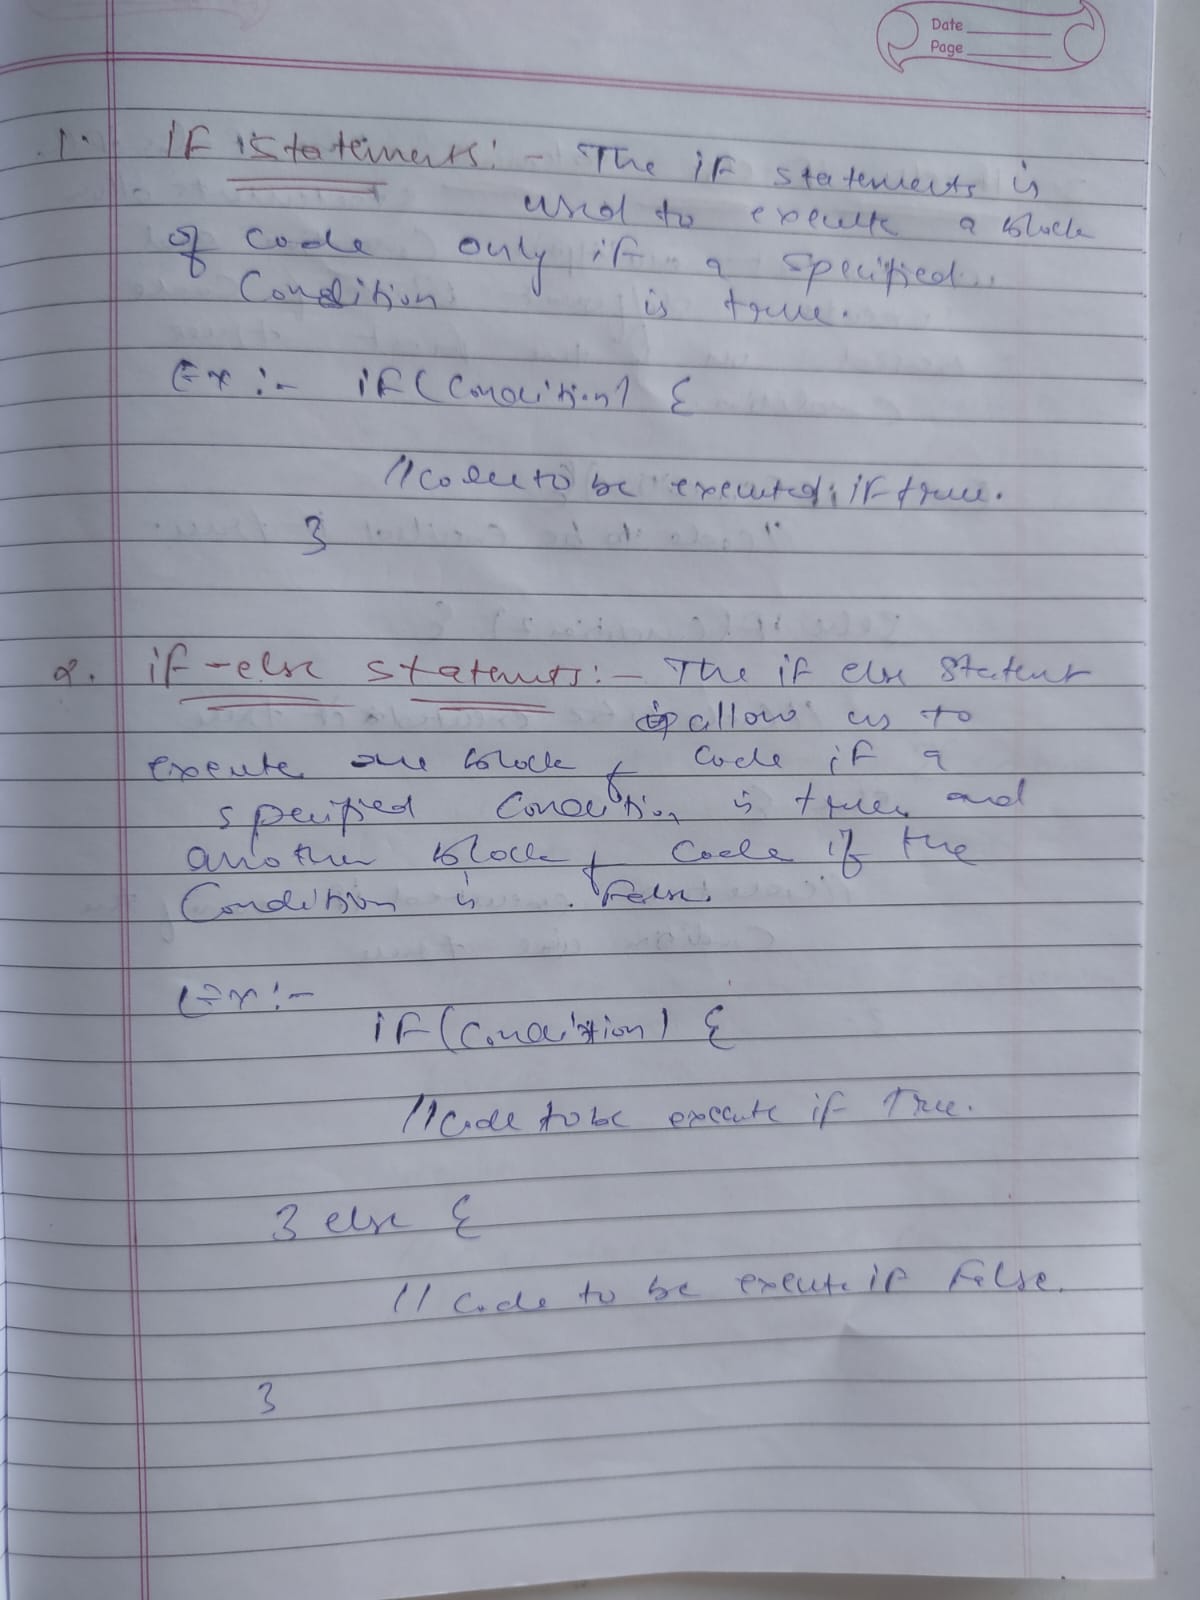 Date
Page
1. IF Statements:- The if statements is
used to execute a block
of code only if a specified
Condition is true.
Ex :- if (Condition) {
//code to be executed if true.
}
2. if-else statements:- The if else statent
allow us to
execute one block of code if a
specified Condition is true, and
another block of code if the
Condition is false.
Ex:-
if (Condition) {
//Code to be execute if True.
} else {
// Code to be execute if False.
}